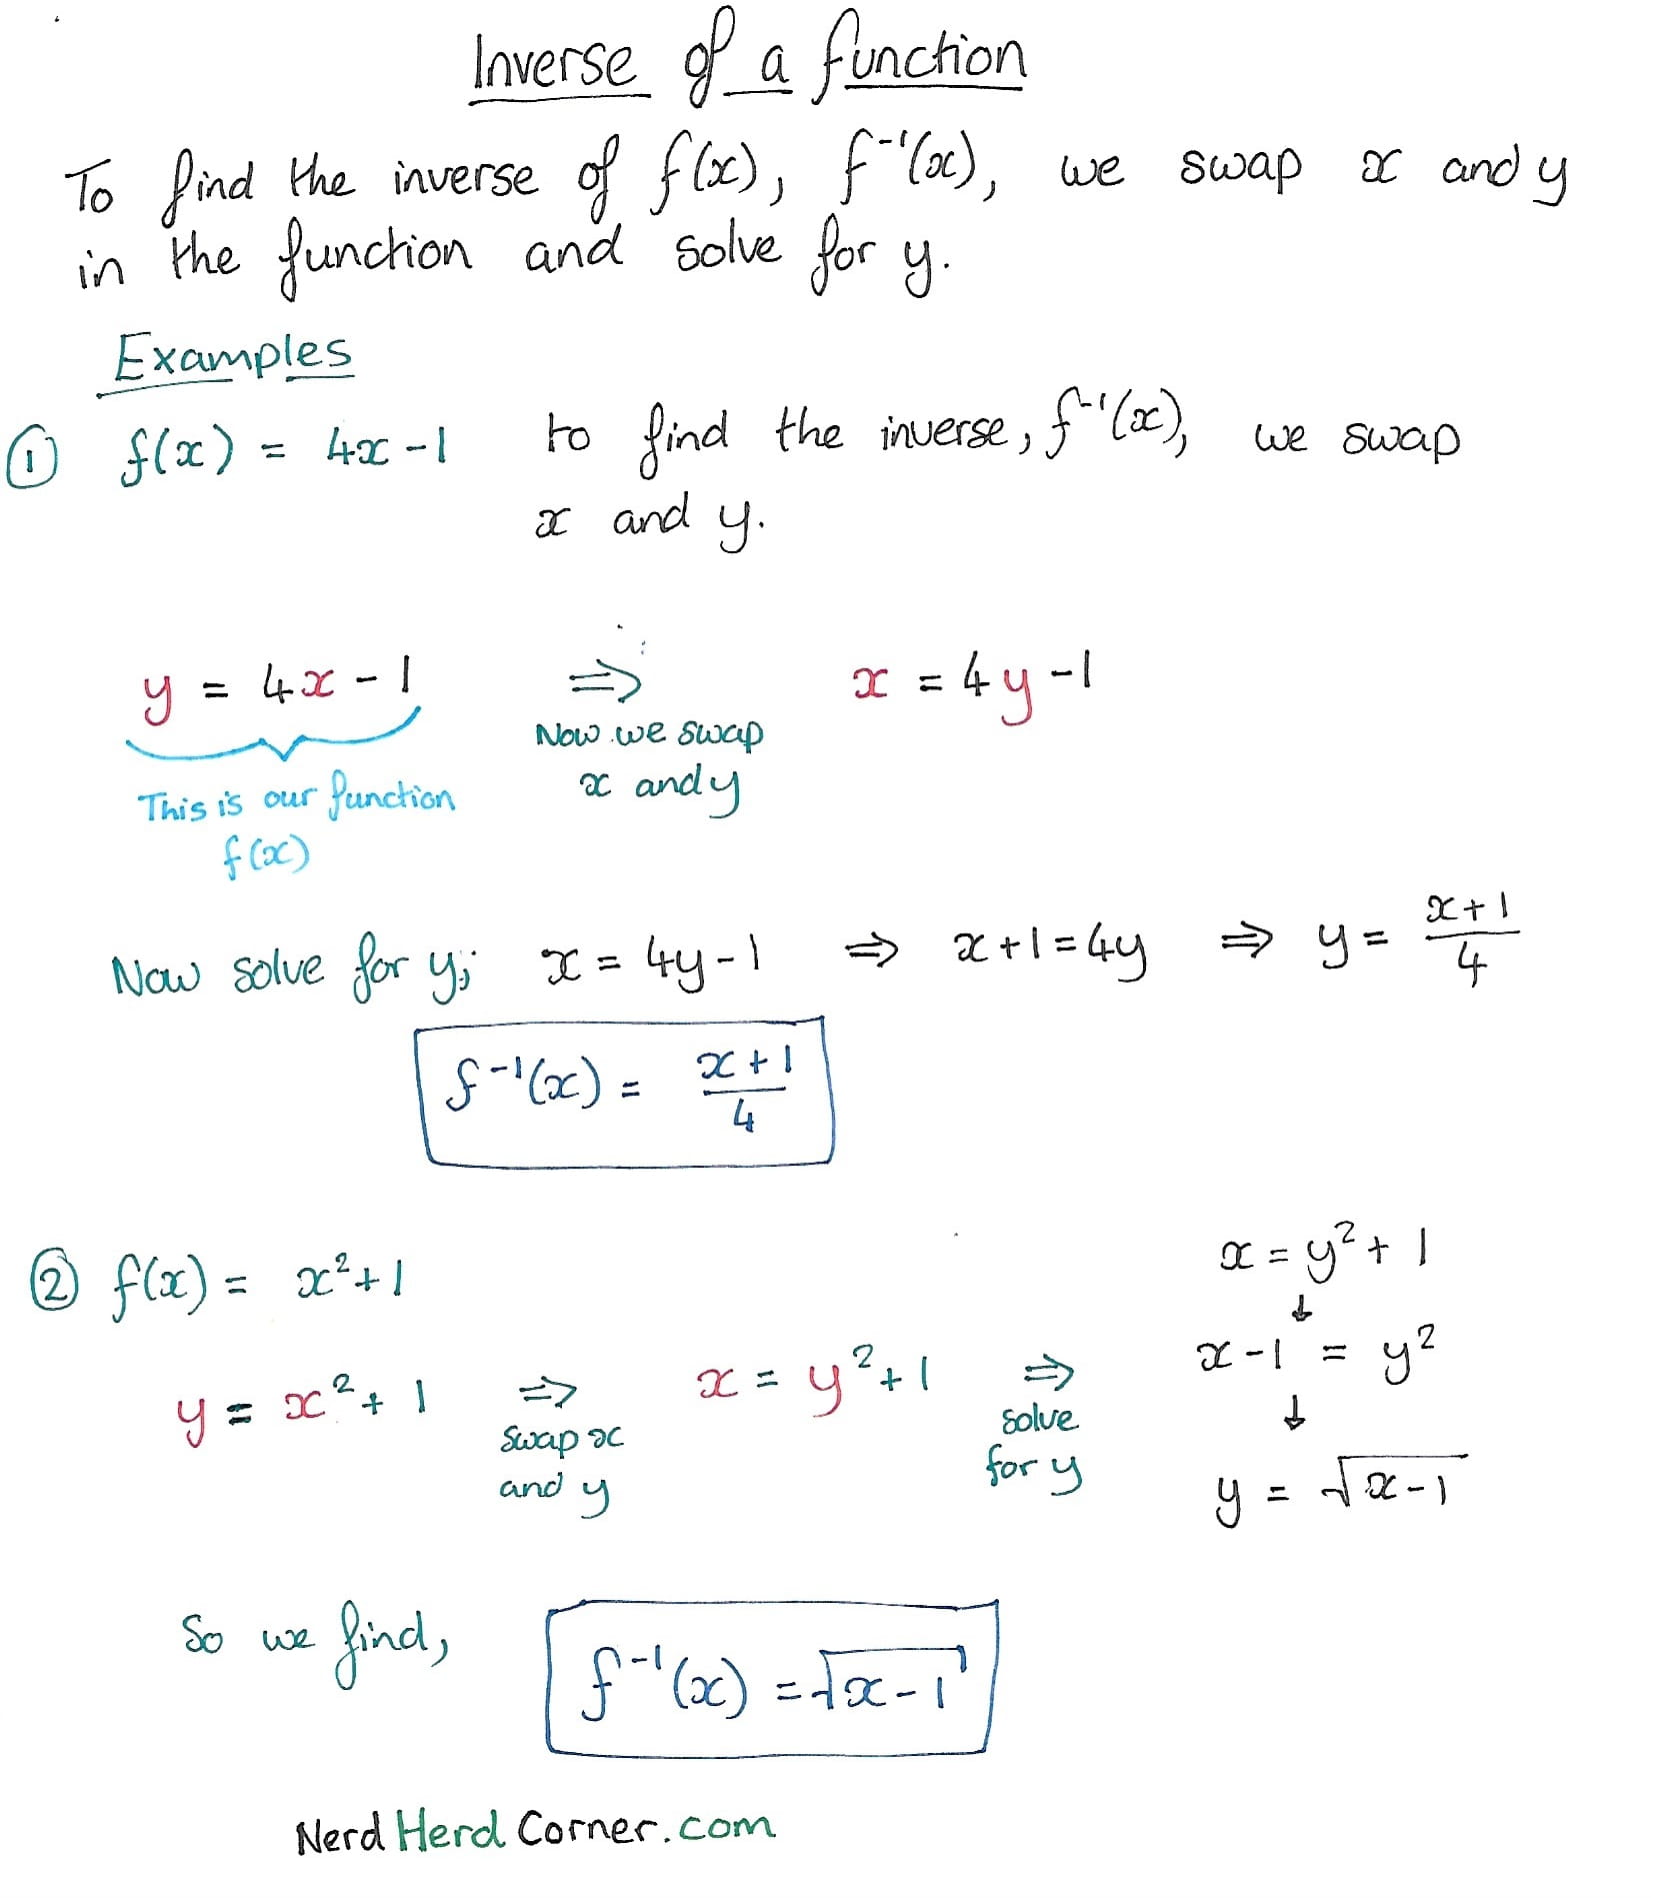 Inverse of a function
To find the inverse of f(x), f⁻¹(x), we swap x and y
in the function and solve for y.
Examples
① f(x) = 4x - 1 to find the inverse, f⁻¹(x), we swap
x and y.
y = 4x - 1 ⇒ x = 4y - 1
Now we swap
x and y
This is our function
f(x)
Now solve for y; x = 4y - 1 ⇒ x + 1 = 4y ⇒ y = (x + 1)/4
f⁻¹(x) = (x + 1)/4
② f(x) = x² + 1
y = x² + 1 ⇒ x = y² + 1 ⇒
swap x
and y
solve
for y
x = y² + 1
↓
x - 1 = y²
↓
y = √(x - 1)
So we find,
f⁻¹(x) = √(x - 1)
Nerd Herd Corner.com